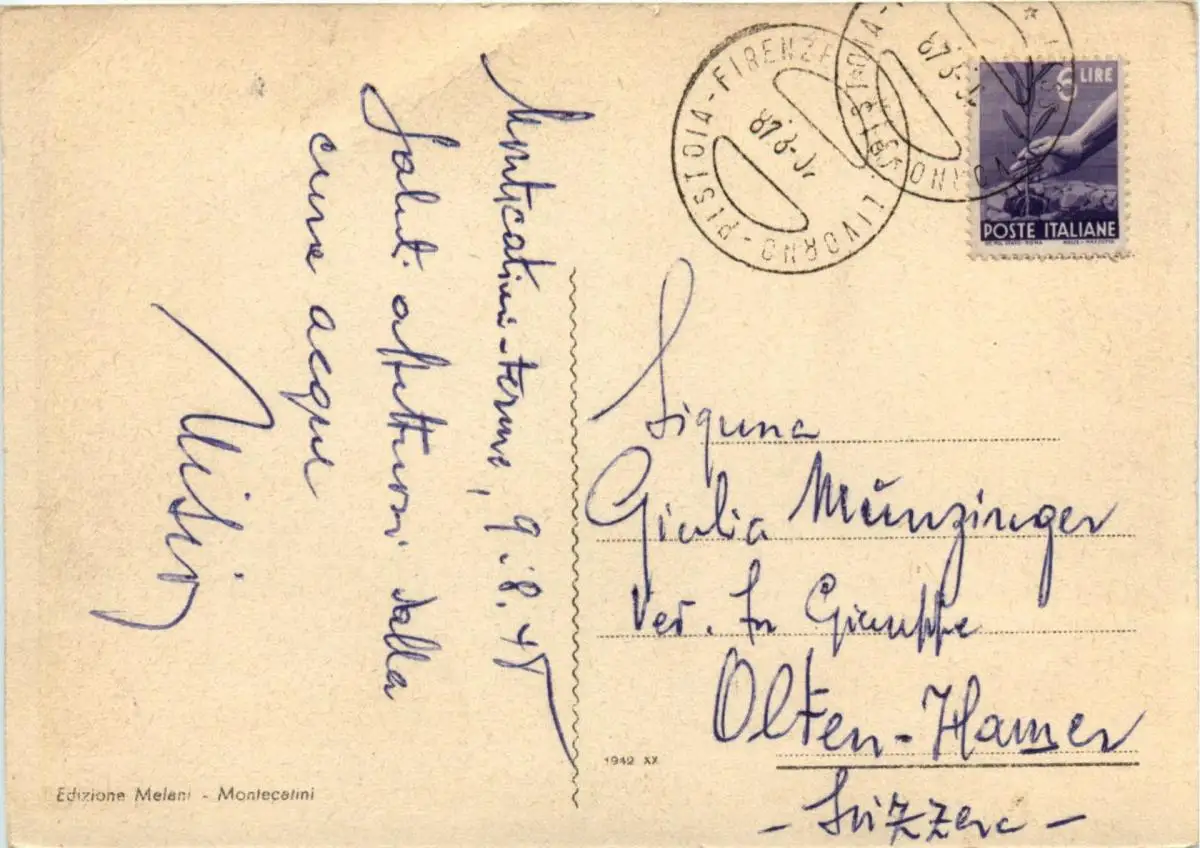 Montecatini-terme, 9.8.48
Saluti affettuosi dalla
cura acque
PISTOIA-FIRENZE
LIVORNO
9.8.48
6 LIRE
POSTE ITALIANE
Signora
Giulia Münzinger
Ved. fu Giuseppe
Olten-Hamer
- Svizzera -
1942 XX
Edizione Melani - Montecatini